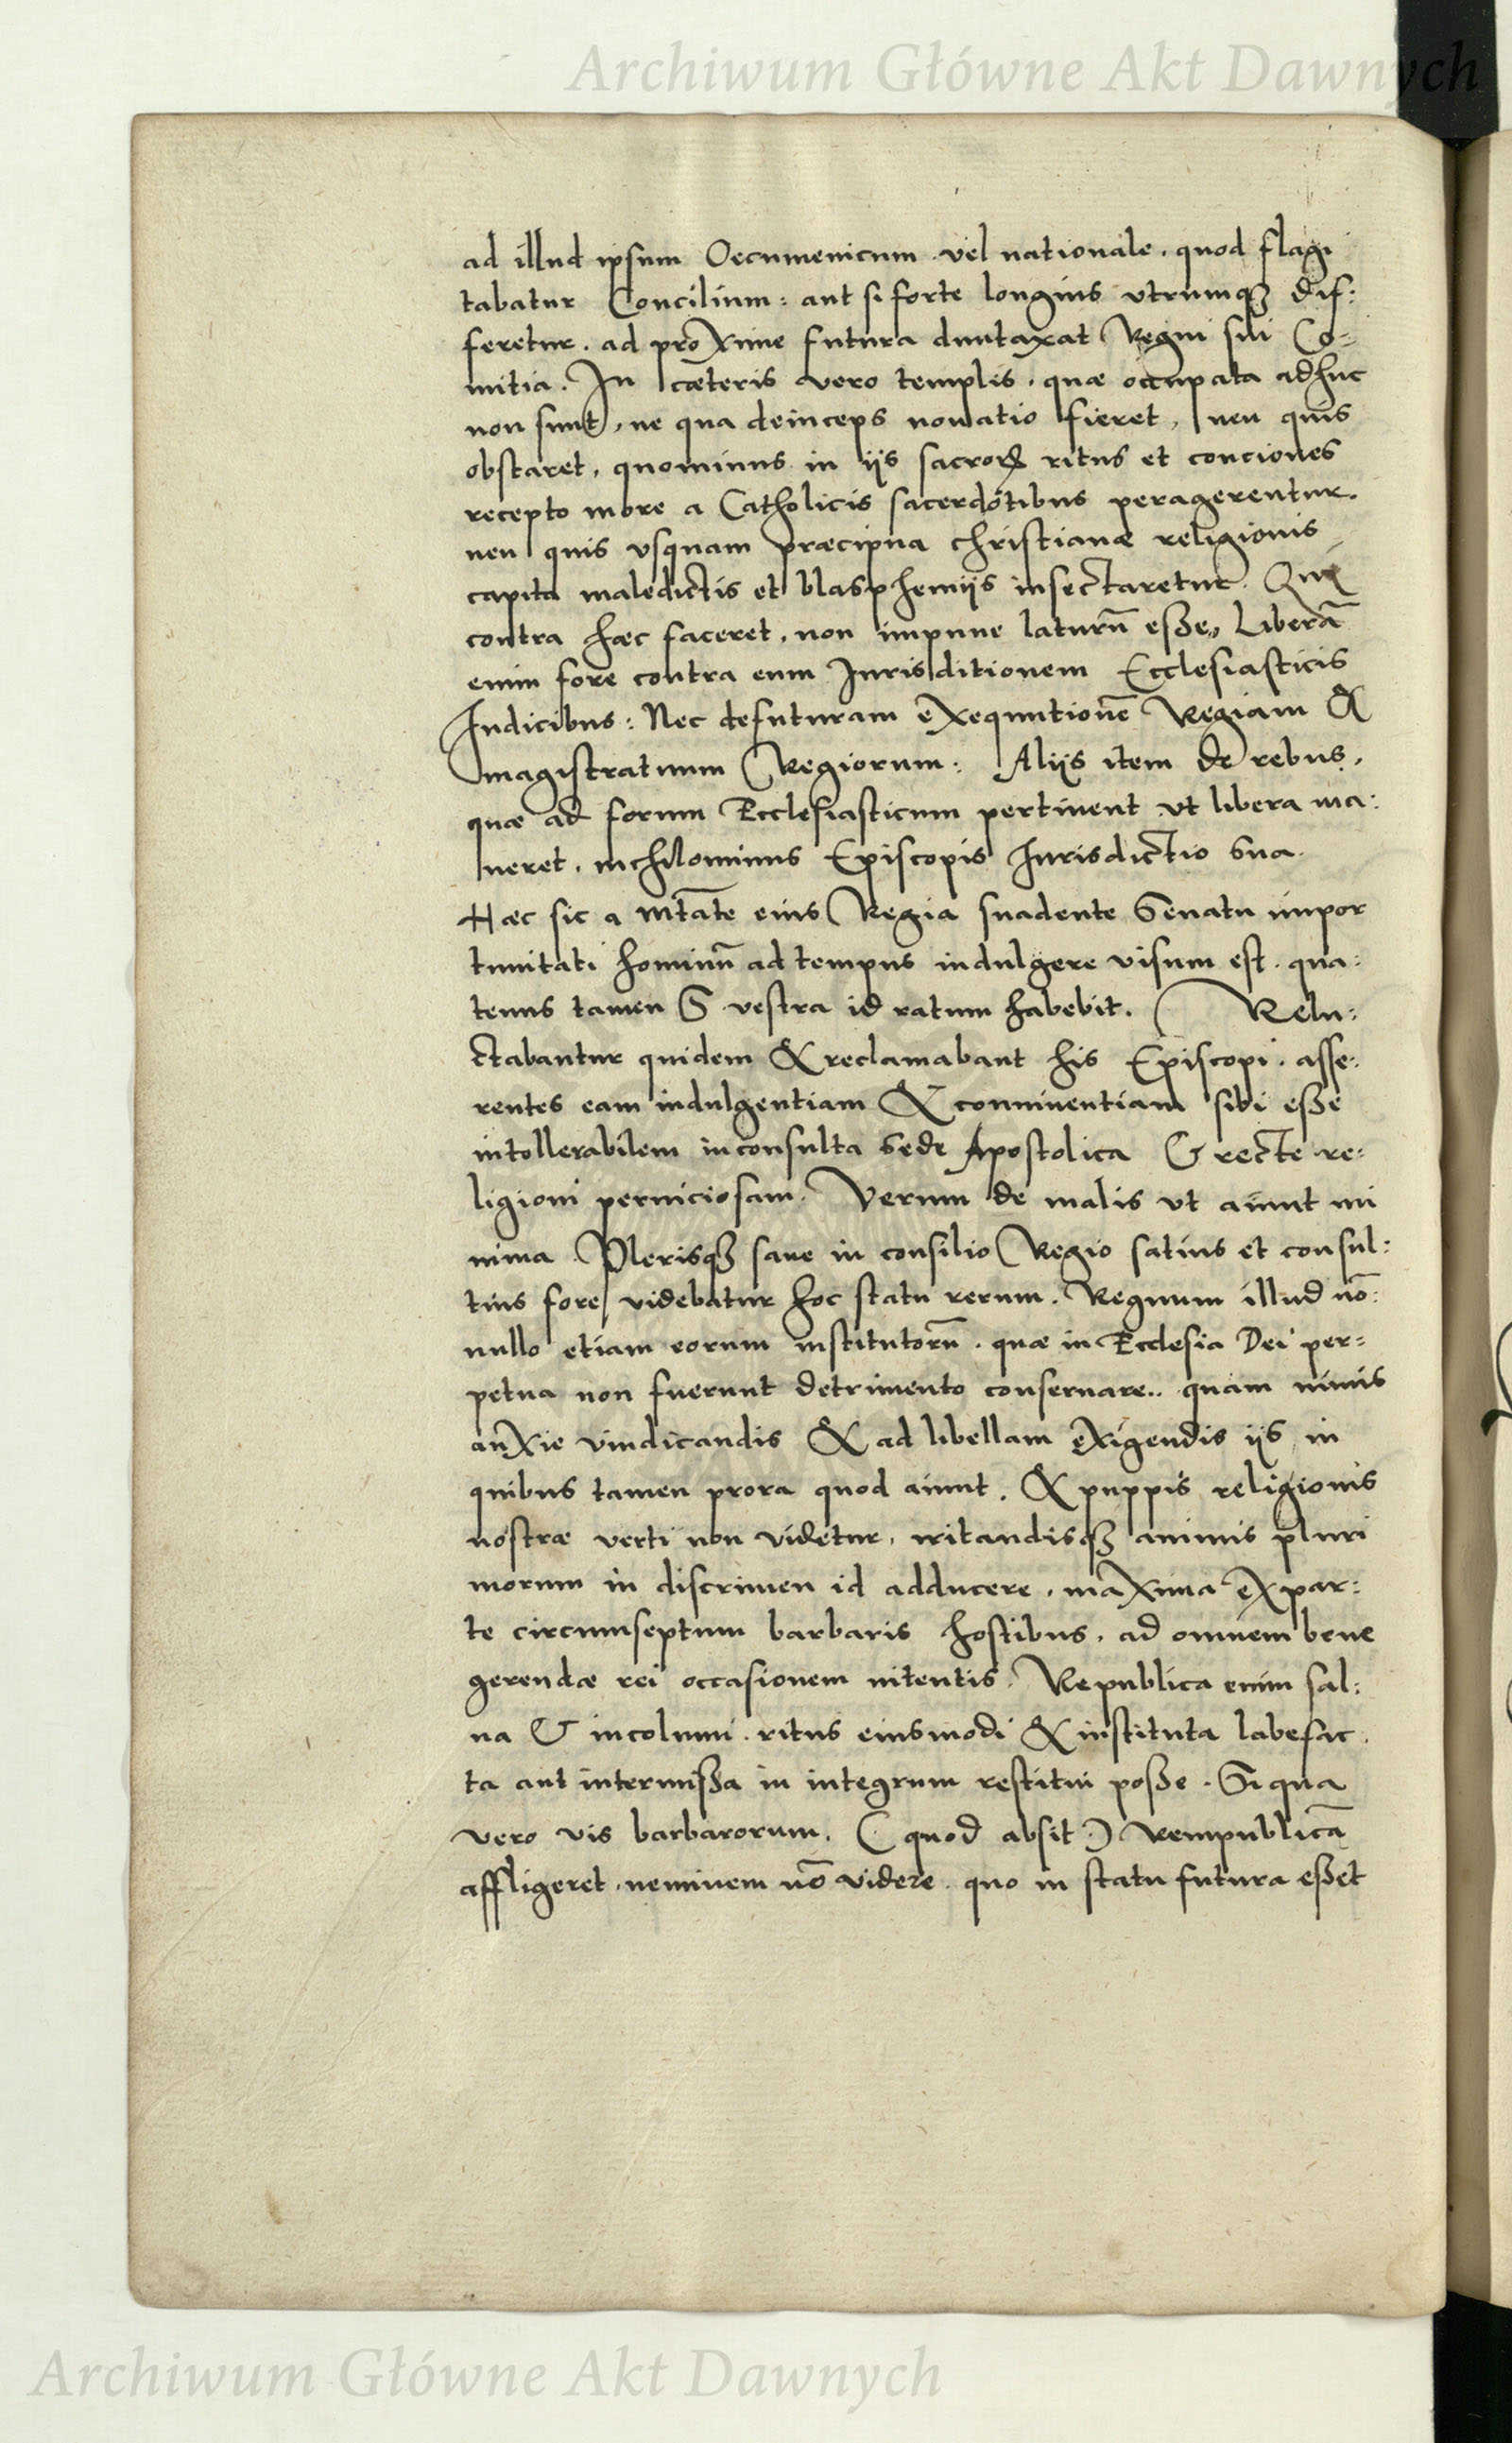 Archiwum Główne Akt Dawnych
ad illud ipsum Oecumenicum vel nationale. quod flagi
tabatur Concilium: aut si forte longius vtrumq3 dif:
feretur. ad proxime futura duntaxat Regni sui Co-
mitia. In cæteris vero templis, quæ occupata adhuc
non sunt, ne qua deinceps nouatio fieret, neu quis
obstaret, quominus in iis sacroꝝ ritus et conciones
recepto more a Catholicis sacerdotibus peragerentur.
neu quis vsquam præcipua christianæ religionis
capita maledictis et blasphemiis insectaretur. Qui
contra hæc faceret, non impune laturũ eße, Liberã
enim fore contra eum Jurisditionem Ecclesiasticis
Iudicibus: Nec defuturam exequutionẽ Regiam &
magistratuum Regiorum: Aliis item de rebus,
quæ ad forum Ecclesiasticum pertinent vt libera ma:
neret, nihilominus Episcopis Jurisdictio sua.
Hæc sic a Mtãte eius Regia suadente Senatu impor
tunitati hominũ ad tempus indulgere visum est. qua:
tenus tamen S vestra id ratum habebit. Relu:
ctabantur quidem & reclamabant his Episcopi. asse:
rentes eam indulgentiam & conniuentiam sibi eße
intollerabilem inconsulta Sede Apostolica & recte re:
ligioni perniciosam. Verum de malis vt aiunt mi
nima. Plerisq3 sane in consilio Regio satius et consul:
tius fore videbatur hoc statu rerum. Regnum illud nõ:
nullo etiam eorum institutorũ. quæ in Ecclesia Dei per=
petua non fuerunt detrimento conseruare.. quam nimis
anxie vindicandis & ad libellam exigendis iis in
quibus tamen prora quod aiunt. & puppis religionis
nostræ verti non videtur, iritandisq3 animis pluri
morum in discrimen id adducere, maxima ex par:
te circumseptum barbaris hostibus, ad omnem bene
gerendæ rei occasionem nitentis. Republica enim sal:
ua & incolumi. ritus eiusmodi & instituta labefac
ta aut intermißa in integrum restitui poße. Si qua
vero vis barbarorum. (quod absit) Rempublicã
affligeret. neminem nõ videre. quo in statu futura eßet
Archiwum Główne Akt Dawnych